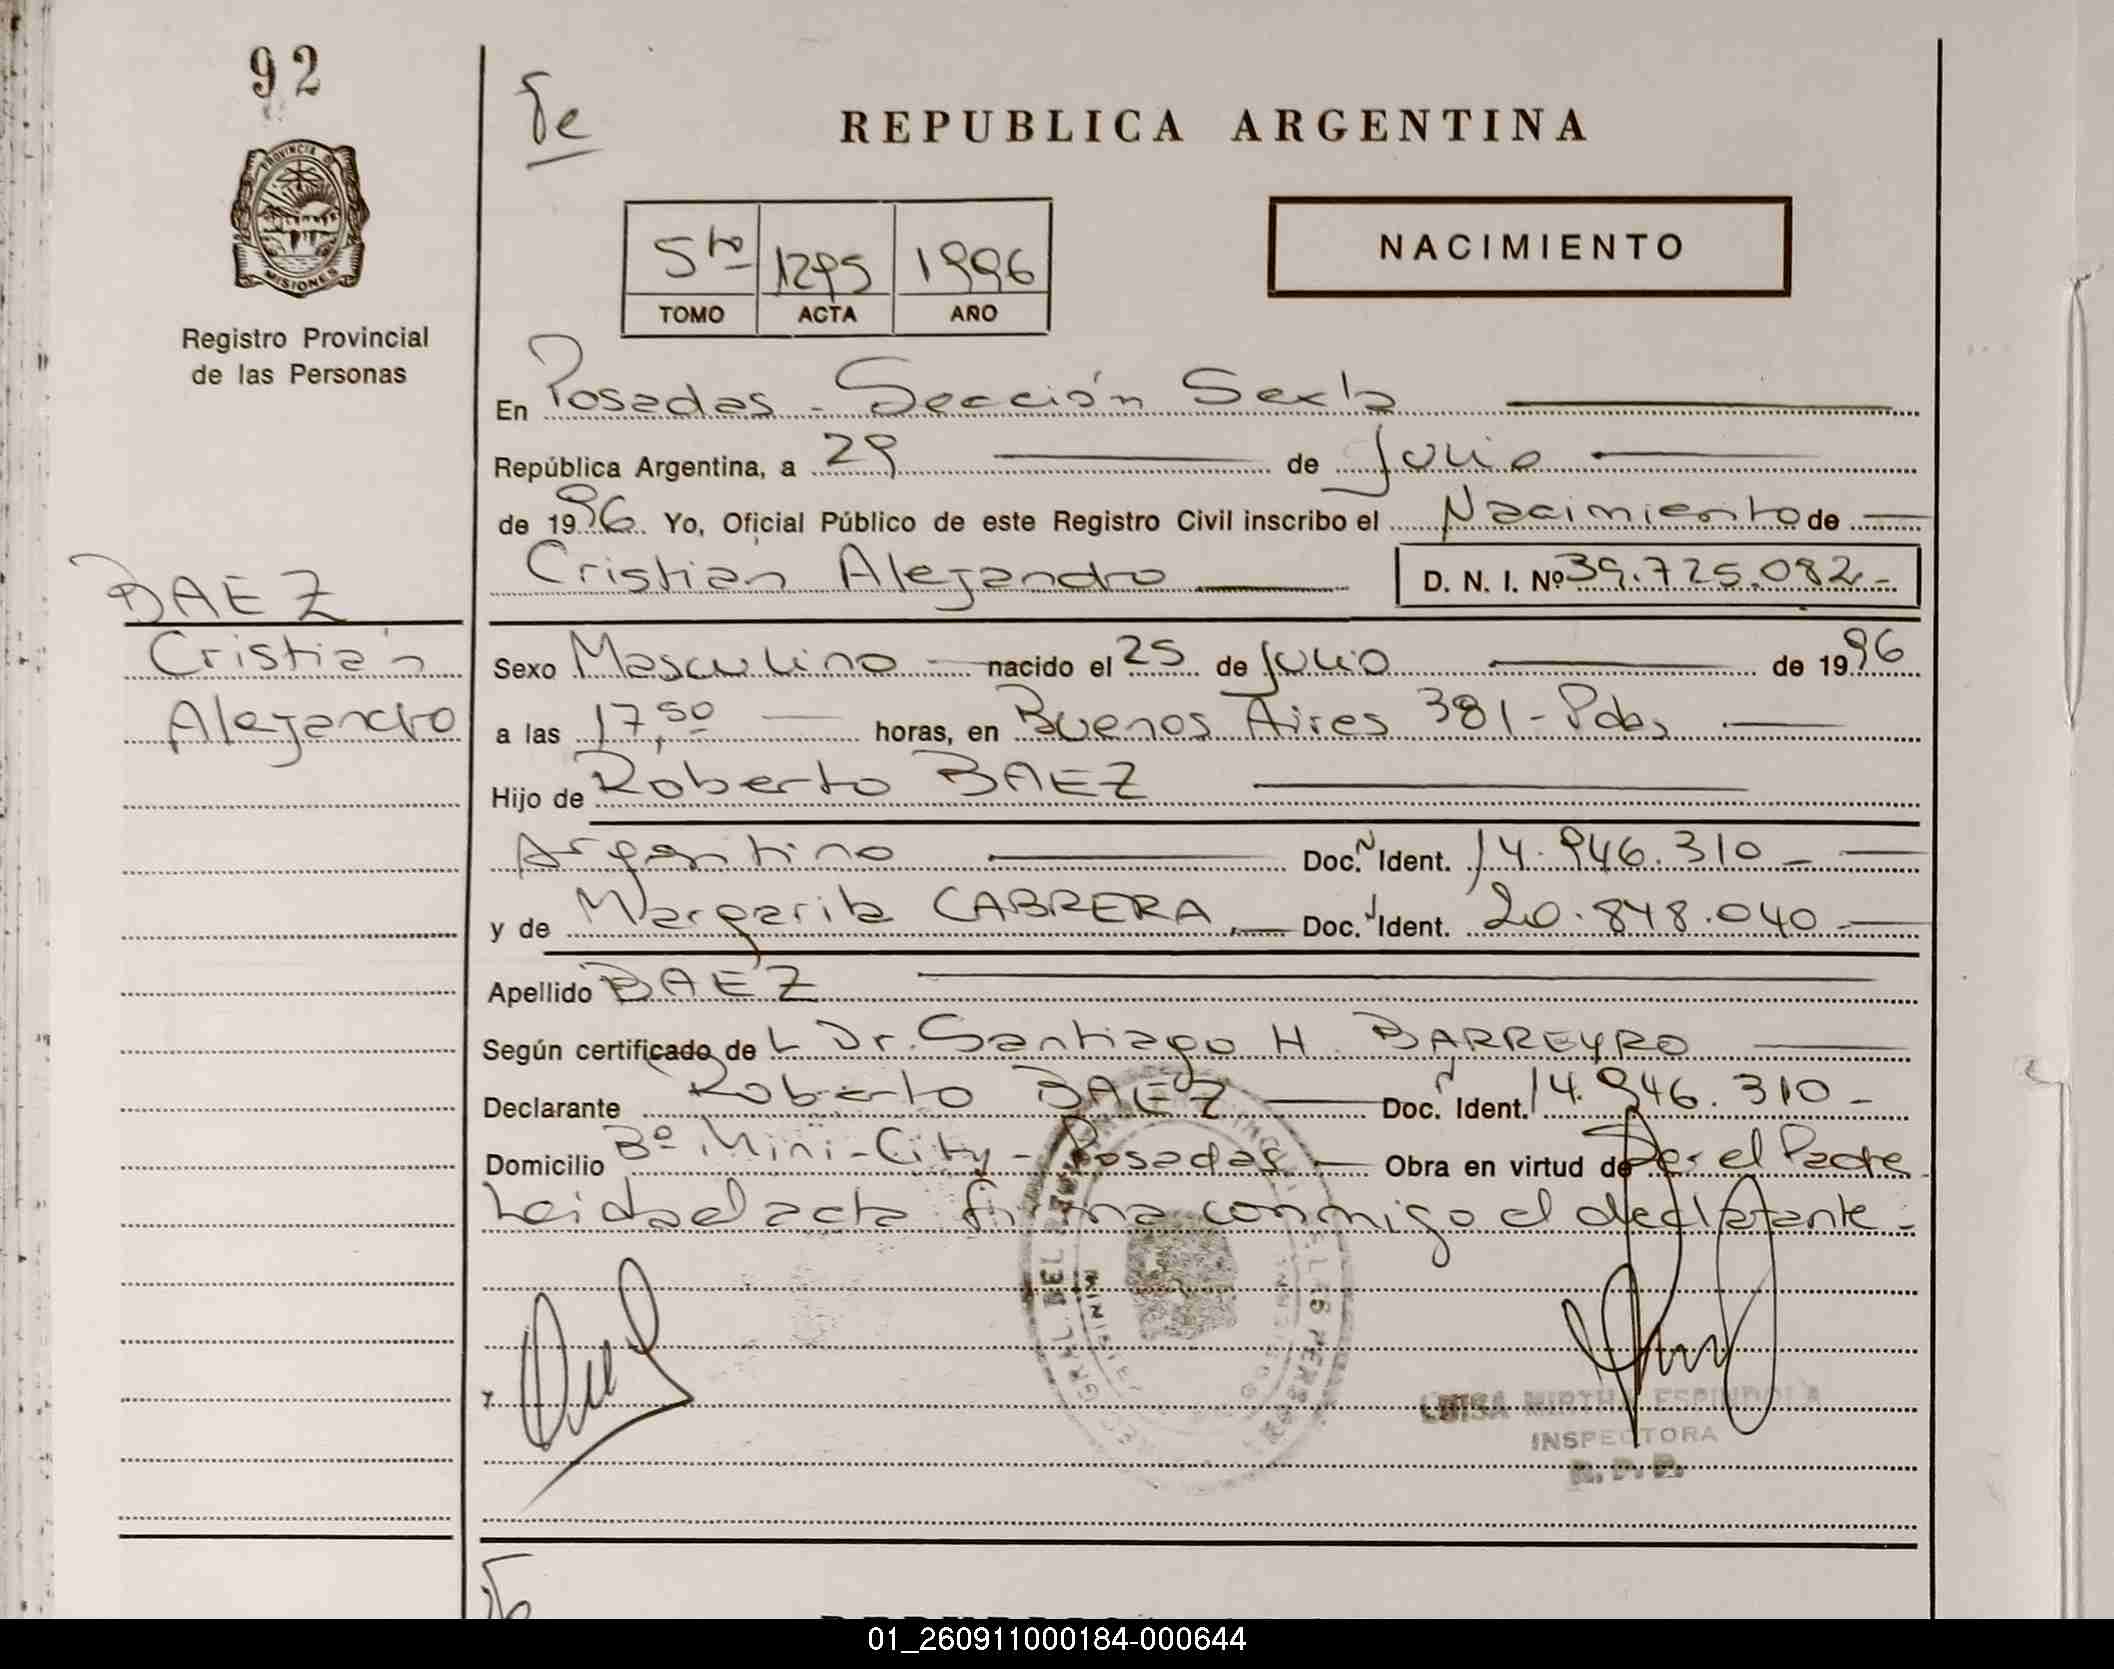 92
REPUBLICA ARGENTINA
PROVINCIA DE
MISIONES
5to 1295 1996
TOMO ACTA AÑO
NACIMIENTO
Registro Provincial
de las Personas
En Posadas - Sección Sexta
República Argentina, a 29 de Julio
de 1996 Yo, Oficial Público de este Registro Civil inscribo el Nacimiento de
Cristian Alejandro D. N. I. Nº 39.725.082.-
BAEZ
Cristian
Alejandro
Sexo Masculino nacido el 25 de Julio de 1996
a las 17,50 horas, en Buenos Aires 381 - Pdas
Hijo de Roberto BAEZ
Argentino Doc. N Ident. 14.946.310 -
y de Margarita CABRERA Doc. N Ident. 20.848.040
Apellido BAEZ
Según certificado de L Dr. Santiago H. BARREYRO
Declarante Roberto BAEZ Doc. N Ident. 14.946.310 -
Domicilio Bº Mini-City - Posadas Obra en virtud de Ser el Padre
Leida el acta firma conmigo el declarante.-
LUISA MIRTHA ESPINDOLA
INSPECTORA
R. P. P.
01_260911000184-000644